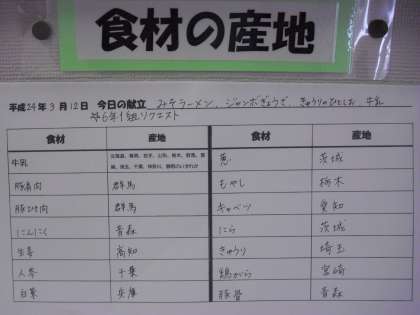 食材の産地
平成24年3月12日 今日の献立 みそラーメン、ジャンボぎょうざ、きゅうりのひとしお、牛乳
6年1組リクエスト
食材 産地 食材 産地
牛乳 葱 茨城
豚肩肉 群馬 もやし 栃木
豚ひき肉 群馬 キャベツ 愛知
にんにく 青森 にら 茨城
生姜 高知 きゅうり 埼玉
人参 千葉 鶏がら 宮崎
白菜 兵庫 豚骨 青森